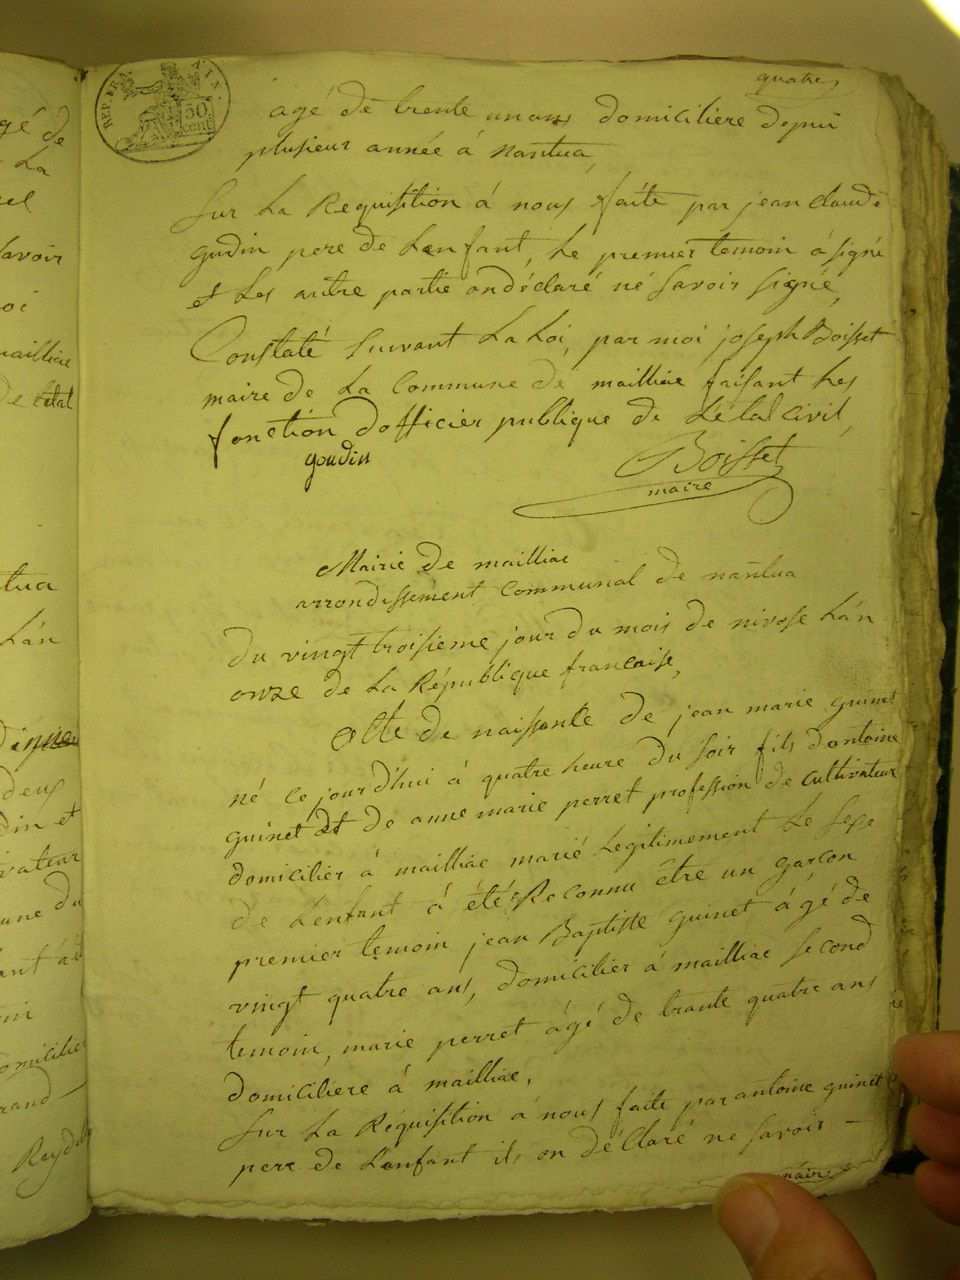 quatre
REP. FRA
50
cent.
agé de trente un ans domiciliere depui
plusieur année á nantua,
Sur La Requisition á nous faite par jean claude
gudin pere de Lenfant, Le premier temoin á signé
et Les autre partie ondéclaré né Savoir signé,
Constaté Suivant La Loi, par moi joseph Boisset
maire de La Commune de mailliac faisant Les
fonction Dofficier publique de Létat civil,
goudin
Boisset
maire
Mairie de mailliac
arrondissement Communal de nantua
du vingt troisieme jour du mois de nivose Lán
onze de La République francaise,
Atte de naissante de jean marie guinet
né ce jourd'hui á quatre heure du soir fils dantoine
guinet et de anne marie perret profession de cultivateur
domicilier á mailliac marié Legitimement Le sexe
de Lenfant á été Reconnu être un garcon
premier temoin jean Baptiste guinet ágé de
vingt quatre ans, domicilier á mailliac second
temoin, marie perret ágé de trante quatre ans
domiciliere á mailliac,
Sur La Réquisition á nous faite par antoine guinet
pere de Lenfant ils on déClaré ne Savoir
gé de
La
avoir
oi
mailliac
tua
Lán
deux
din et
ivateur
une du
omicilier
rand